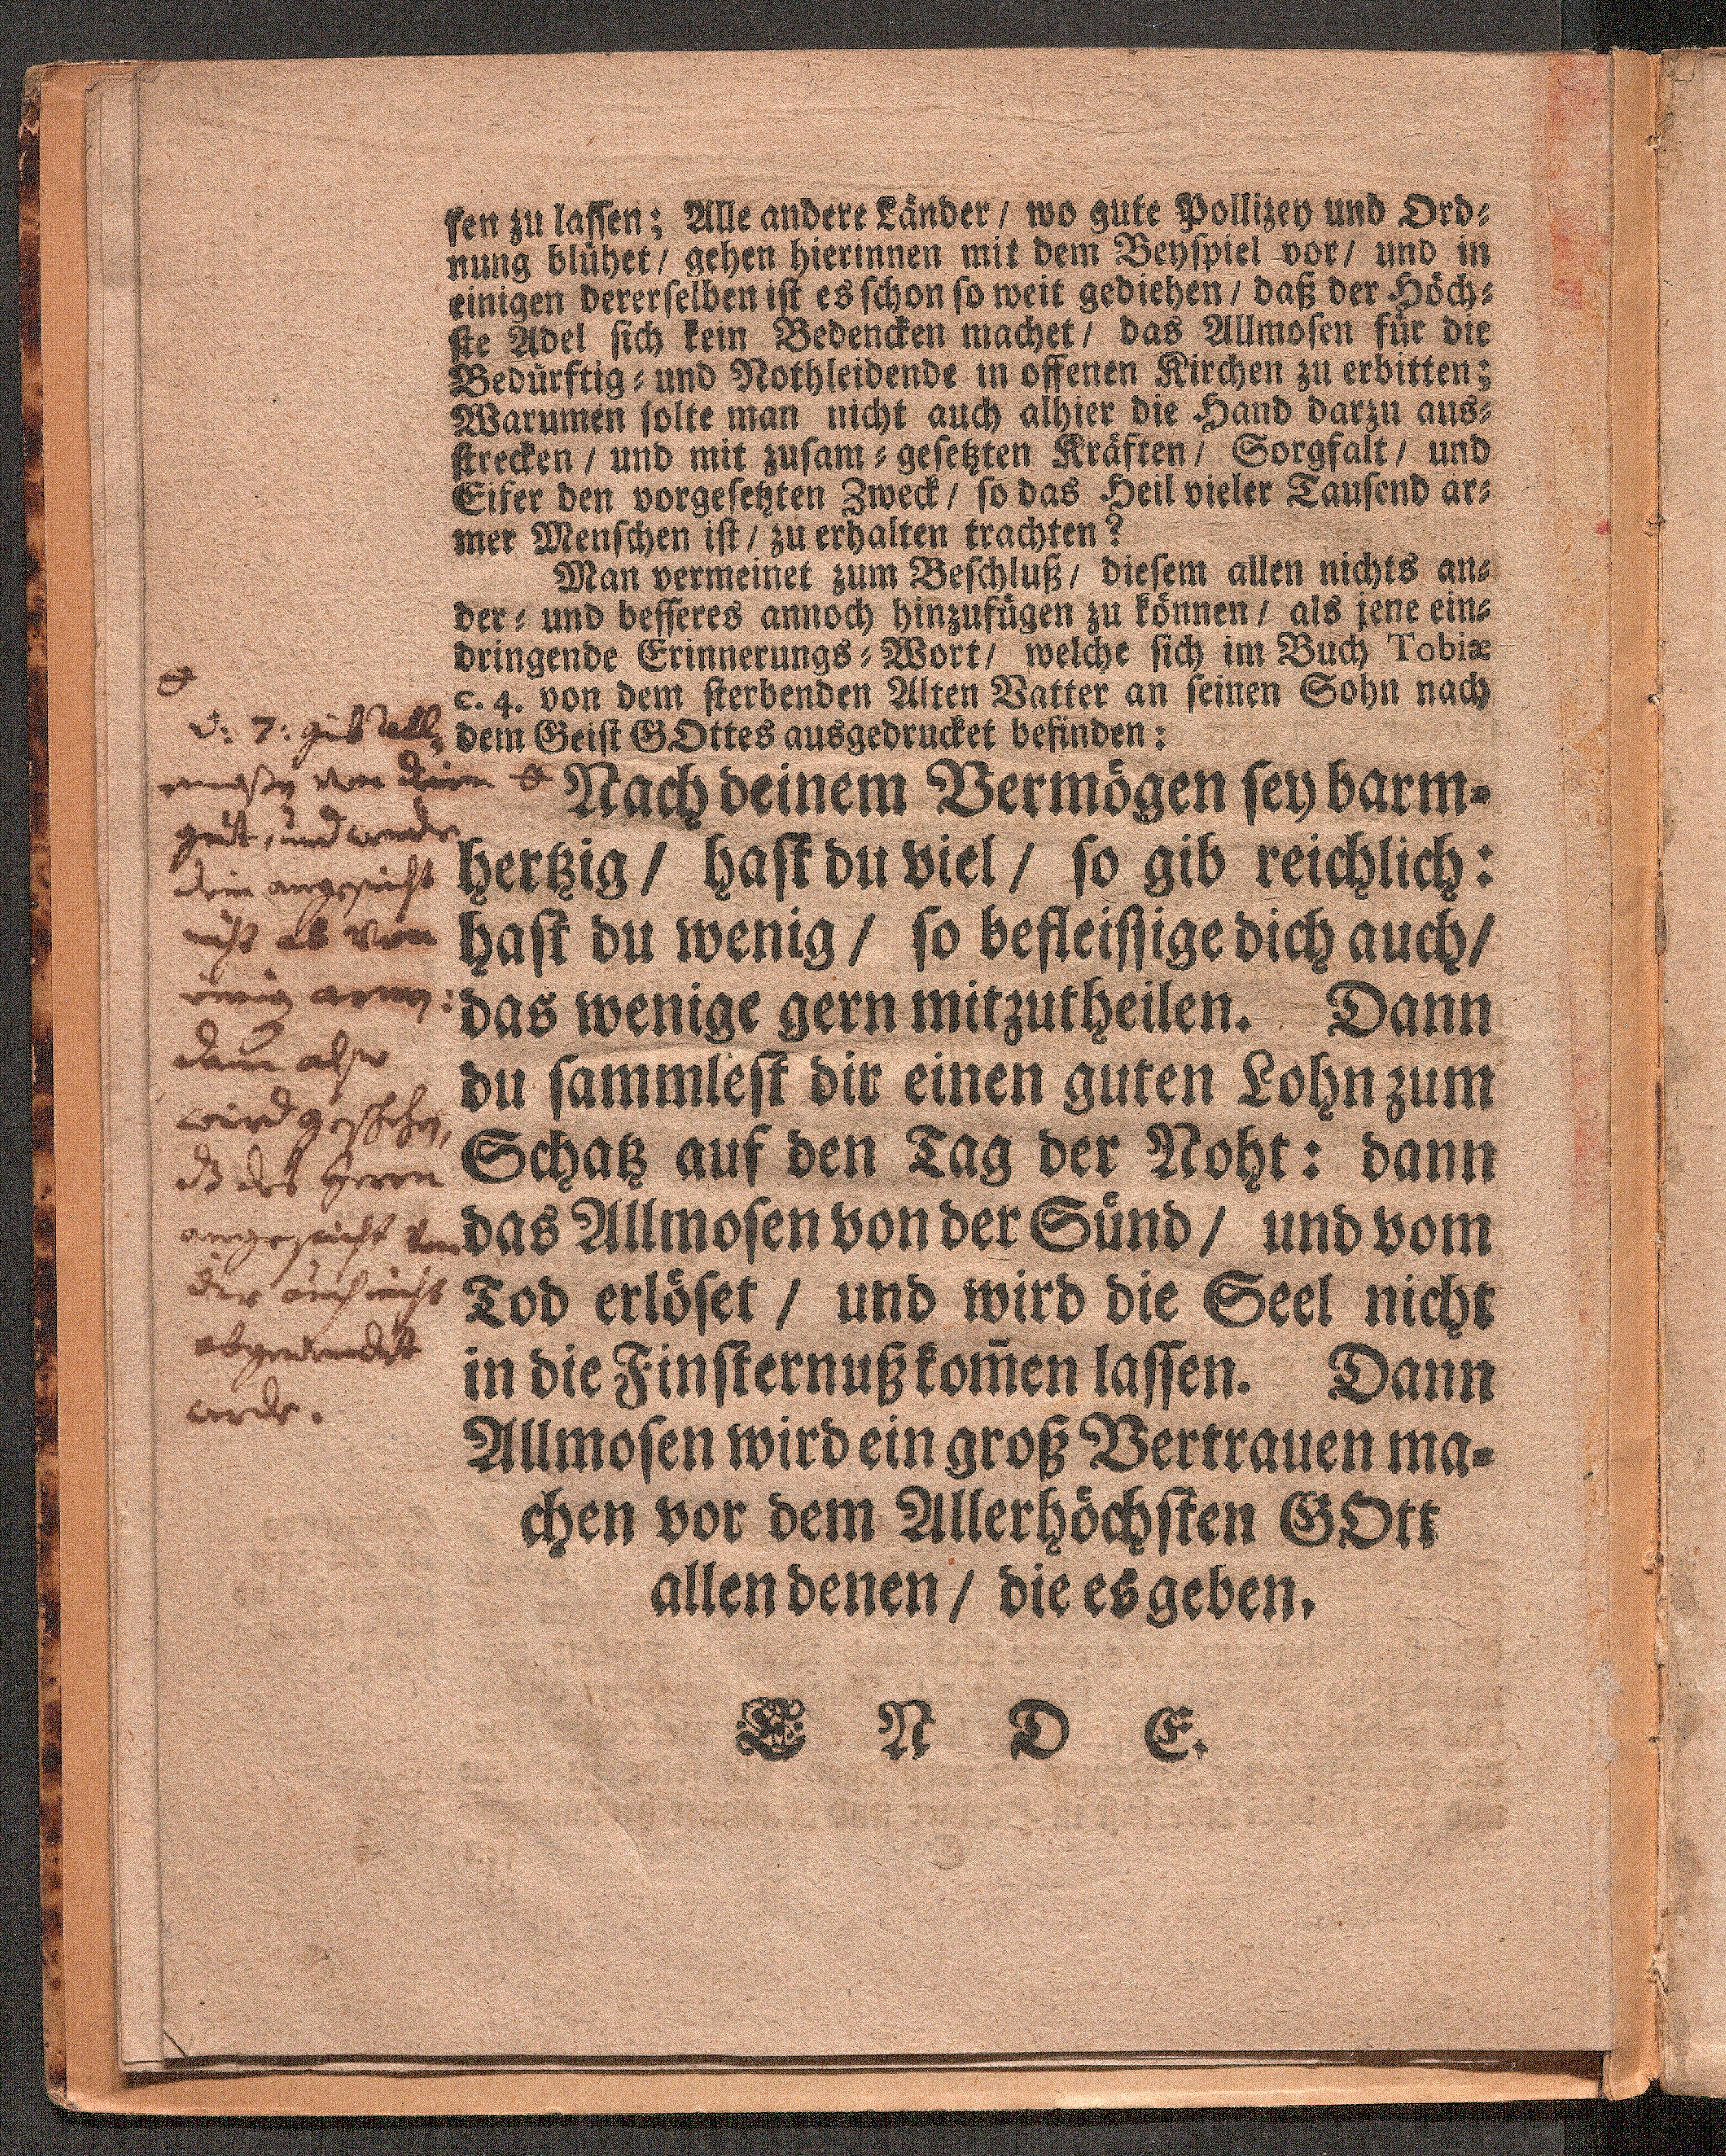 sen zu lassen; Alle andere Länder / wo gute Pollizey und Ord⸗
nung blühet / gehen hierinnen mit dem Beyspiel vor / und in
einigen dererselben ist es schon so weit gediehen / daß der Höch⸗
ste Adel sich kein Bedencken machet / das Allmosen für die
Bedürftig⸗ und Nothleidende in offenen Kirchen zu erbitten;
Warumen solte man nicht auch alhier die Hand darzu aus⸗
strecken / und mit zusam⸗gesetzten Kräften / Sorgfalt / und
Eifer den vorgesetzten Zweck / so das Heil vieler Tausend ar⸗
mer Menschen ist / zu erhalten trachten?
Man vermeinet zum Beschluß / diesem allen nichts an⸗
der⸗ und besseres annoch hinzufügen zu können / als jene ein⸗
dringende Erinnerungs⸗Wort / welche sich im Buch Tobiæ
c. 4. von dem sterbenden Alten Vatter an seinen Sohn nach
dem Geist GOttes ausgedrucket befinden:
Nach deinem Vermögen sey barm⸗
hertzig / hast du viel / so gib reichlich:
hast du wenig / so befleissige dich auch /
das wenige gern mitzutheilen. Dann
du sammlest dir einen guten Lohn zum
Schatz auf den Tag der Noht: dann
das Allmosen von der Sünd / und vom
Tod erlöset / und wird die Seel nicht
in die Finsternuß kom̄en lassen. Dann
Allmosen wird ein groß Vertrauen ma⸗
chen vor dem Allerhöchsten GOtt
allen denen / die es geben.
E N D E.
v: 7: gib all⸗
mosen von deim
gut, und wende
dein angesicht
nicht ab von
einig armen:
dann also
wird geschehen,
dz des Herrn
angesicht von
dir auch nicht
abgewendet
werde.